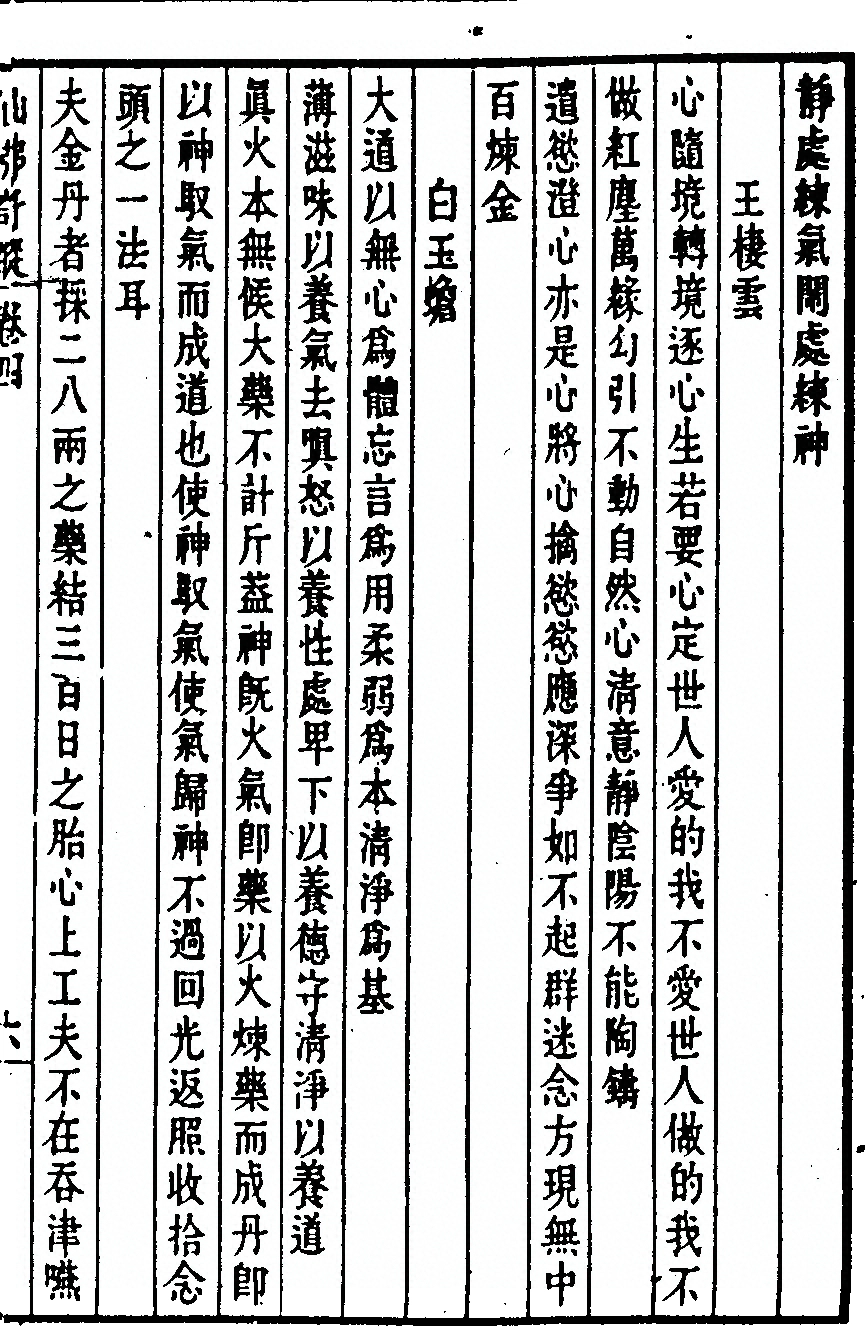 靜處練氣閙處練神
王棲雲
心隨境轉境逐心生若要心定世人愛的我不愛世人做的我不
做紅塵萬緣勾引不動自然心清意靜陰陽不能陶鑄
遣慾澄心亦是心將心擒慾慾應深爭如不起群迷念方現無中
百煉金
白玉蟾
大道以無心爲體忘言爲用柔弱爲本清淨爲基
薄滋味以養氣去嗔怒以養性處卑下以養德守清淨以養道
眞火本無候大藥不計斤葢神既火氣卽藥以火煉藥而成丹卽
以神馭氣而成道也使神馭氣使氣歸神不過回光返照收拾念
頭之一法耳
夫金丹者採二八兩之藥結三百日之胎心上工夫不在吞津嚥
仙佛奇蹤 卷四 六